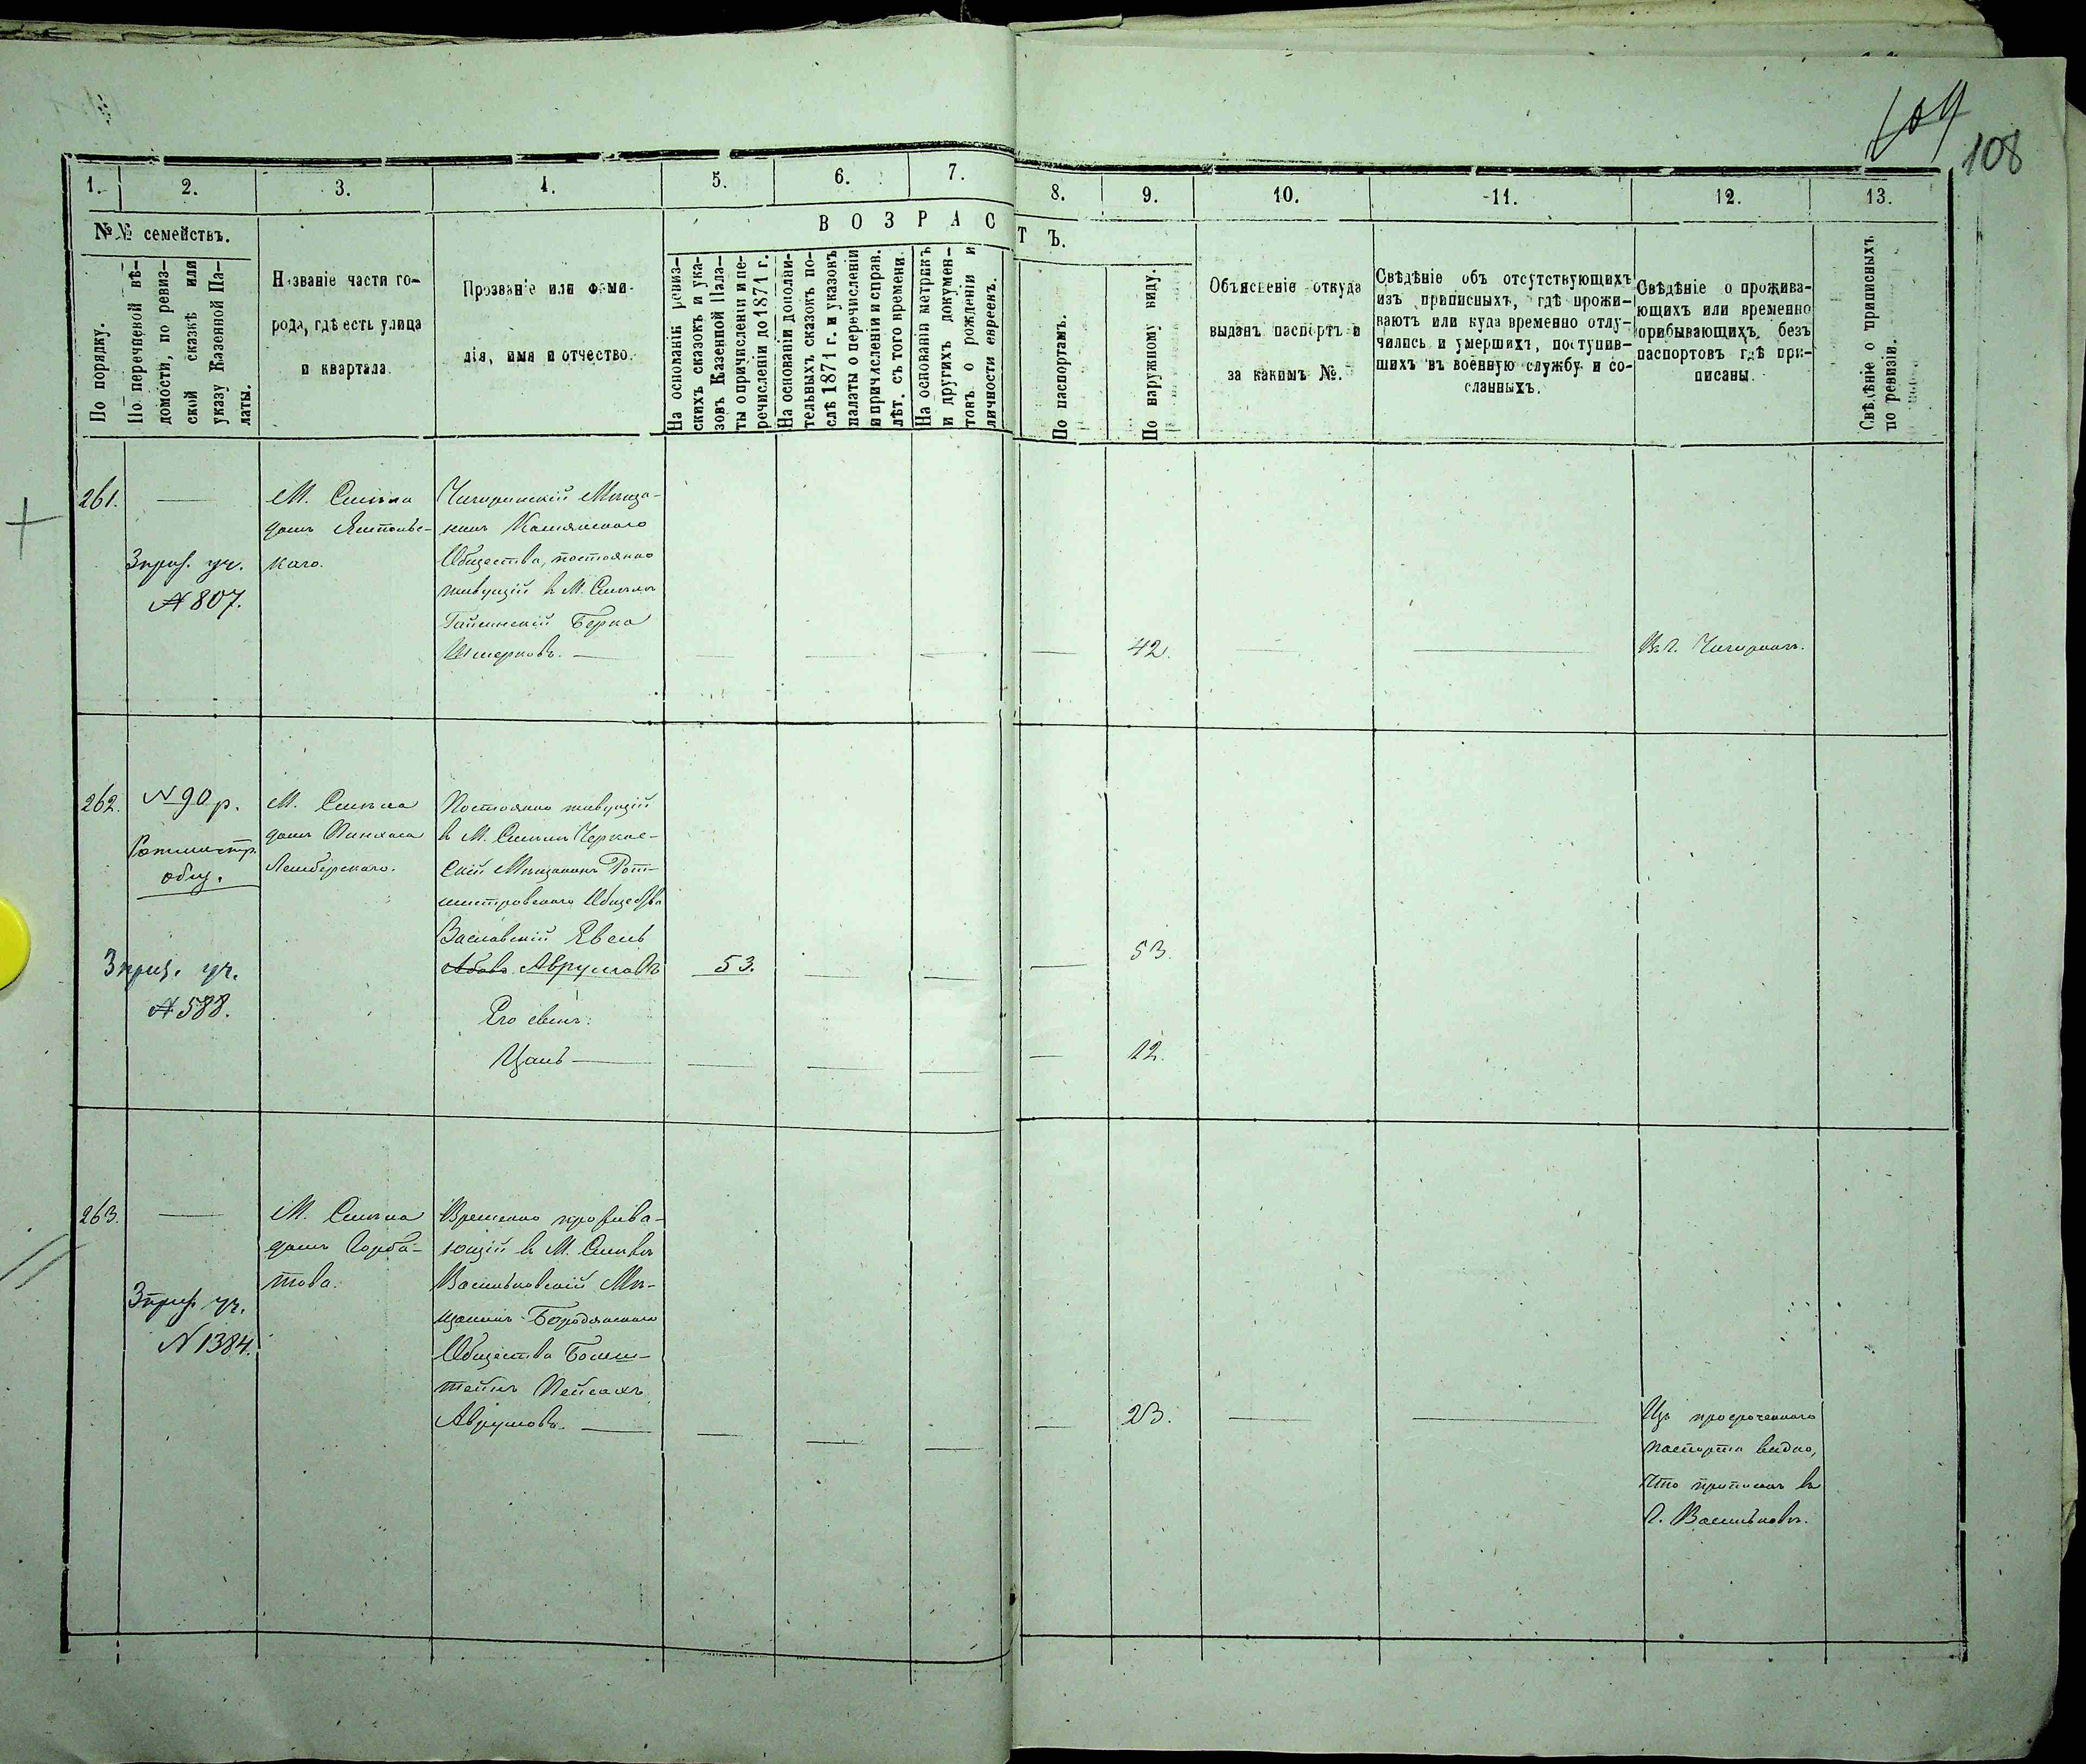 109
108
1. 2. 3. 4. 5. 6. 7. 8. 9. 10. 11. 12. 13.
№№ семействъ.
По порядку.
По перечневой вѣ-
домости, по ревиз-
ской сказкѣ или
указу Казенной Па-
латы.
Названіе части го-
рода, гдѣ есть улица
и квартала.
Прозваніе или фами-
лія, имя и отчество.
ВОЗРАСТЪ.
На основаніи ревиз-
скихъ сказокъ и ука-
зовъ Казенной Пала-
ты о причисленіи и пе-
речисленіи до 1871 г.
На основаніи дополни-
тельныхъ сказокъ по-
слѣ 1871 г. и указовъ
палаты о перечисленіи
и причисленіи и справ.
лѣт. съ того времени.
На основаніи метрикъ
и другихъ докумен-
товъ о рожденіи и
личности евреевъ.
По паспортамъ.
По наружному виду.
Объясненіе откуда
выданъ паспортъ и
за какимъ №.
Свѣдѣніе объ отсутствующихъ
изъ приписныхъ, гдѣ прожи-
ваютъ или куда временно отлу-
чились и умершихъ, поступив-
шихъ въ военную службу и со-
сланныхъ.
Свѣдѣніе о прожива-
ющихъ или временно
прибывающихъ безъ
паспортовъ гдѣ при-
писаны.
Свѣдѣніе о приписныхъ
по ревизіи.
261.
3 приз. уч.
№ 807.
М. Смѣла
домъ
каго.
Чигиринскій Мѣща-
нинъ
Общества, постоянно
живущій в М. Смѣлѣ
Гайсинскій Берко
42.
В г. Чигиринѣ.
262.
№ 90 р.
Ротмистр.
общ.
3 приз. уч.
№ 588.
М. Смѣла
домъ Пинхаса
Лемберскаго.
Постоянно живущій
в М. Смѣлѣ Черкас-
скій Мѣщанинъ Рот-
мистровскаго Общества
Ваславскій
Аврумовъ
53.
53.
Его сынъ:
12.
263.
3 приз. уч.
№ 1384.
М. Смѣла
домъ Горба-
това.
Временно прожива-
ющій в М. Смѣлѣ
Васильковскій Мѣ-
щанинъ Бородянскаго
Общества
тейнъ Пейсахъ
Аврумовъ.
23.
Изъ просроченнаго
паспорта видно,
что приписанъ в
г. Васильковѣ.